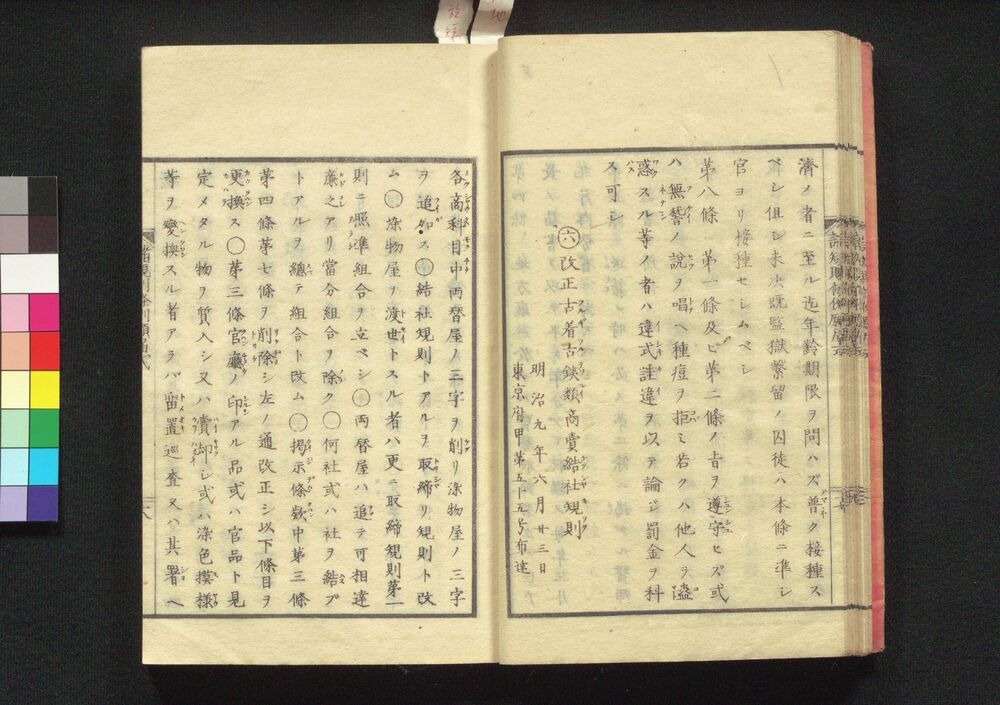 濟ノ者ニ至ル迄年齡期限ヲ問ハズ普ク接種ス
ベシ但シ未决既監獄繋留ノ囚徒ハ本條ニ準シ
官ヨリ接種セシムベシ
第八條 第一條及ビ第二條ノ旨ヲ遵守セズ或
ハ無誓ノ說ヲ唱ヘ種痘ヲ拒ミ若クハ他人ヲ
惑スル等ノ者ハ違式詿違ヲ以テ論ジ罰金ヲ科
ス可シ
㊅改正古着古鐵類商賣結社規則
明治九年六月廿三日
東京府甲第五十五号布達
各商科目中両替屋ノ三字ヲ削リ染物屋ノ三字
ヲ追加ス○結社規則トアルヲ取締リ規則ト改
ム○染物屋ヲ渡世トスル者ハ更ニ取締規則第一
則ニ照準組合ヲ立ベシ○両替屋ハ追テ可相達
廉之アリ當分組合ヲ除ク○何社或ハ社ヲ結ブ
トアルヲ總テ組合ト改ム○揭示條款中第三條
第四條第七條ヲ削除シ左ノ通改正シ以下條目ヲ
更換ス○第三條官廳ノ印アル品或ハ官品ト見
定メタル物ヲ質入シ又ハ賣却シ或ハ染色摸樣
等ヲ變換スル者アラバ留置巡査又ハ其署ヘ